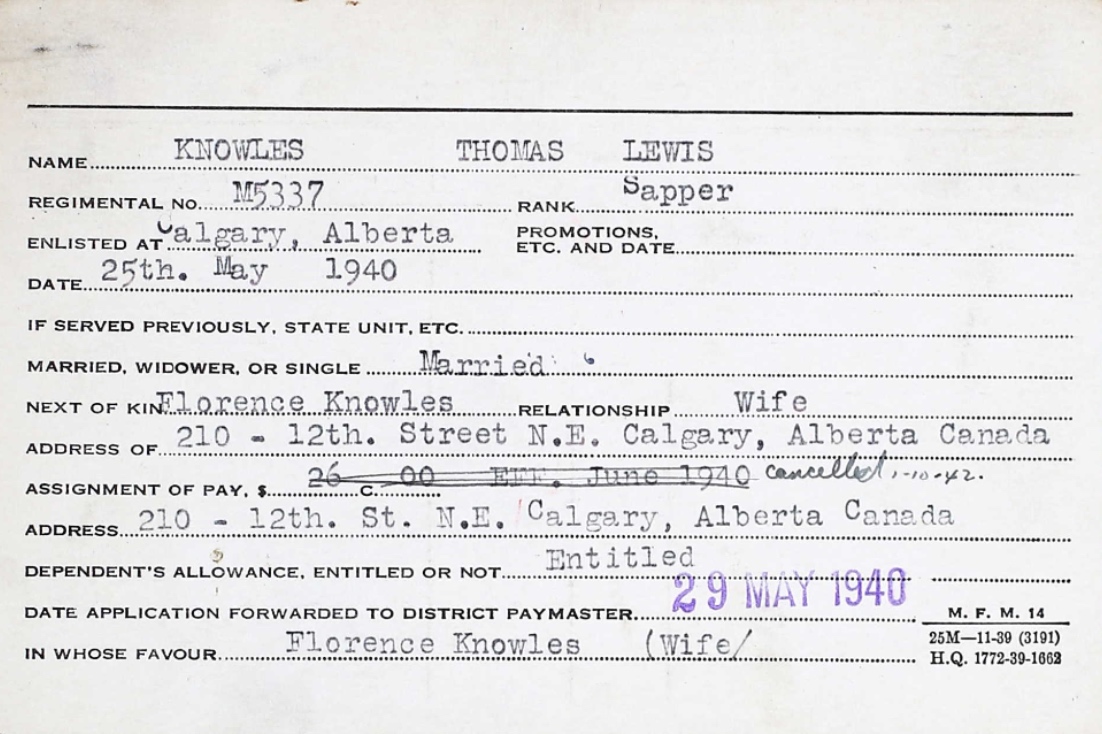 NAME KNOWLES THOMAS LEWIS
REGIMENTAL NO. M5337 RANK Sapper
ENLISTED AT Calgary, Alberta PROMOTIONS, ETC. AND DATE
DATE 25th. May 1940
IF SERVED PREVIOUSLY, STATE UNIT, ETC.
MARRIED, WIDOWER, OR SINGLE Married
NEXT OF KIN Florence Knowles RELATIONSHIP Wife
ADDRESS OF 210 - 12th. Street N.E. Calgary, Alberta Canada
ASSIGNMENT OF PAY, $ 26 C. 00 EFF. June 1940 cancelled 1-10-42.
ADDRESS 210 - 12th. St. N.E. Calgary, Alberta Canada
DEPENDENT'S ALLOWANCE, ENTITLED OR NOT Entitled
DATE APPLICATION FORWARDED TO DISTRICT PAYMASTER 29 MAY 1940
IN WHOSE FAVOUR Florence Knowles (Wife/
M. F. M. 14
25M—11-39 (3191)
H.Q. 1772-39-1662